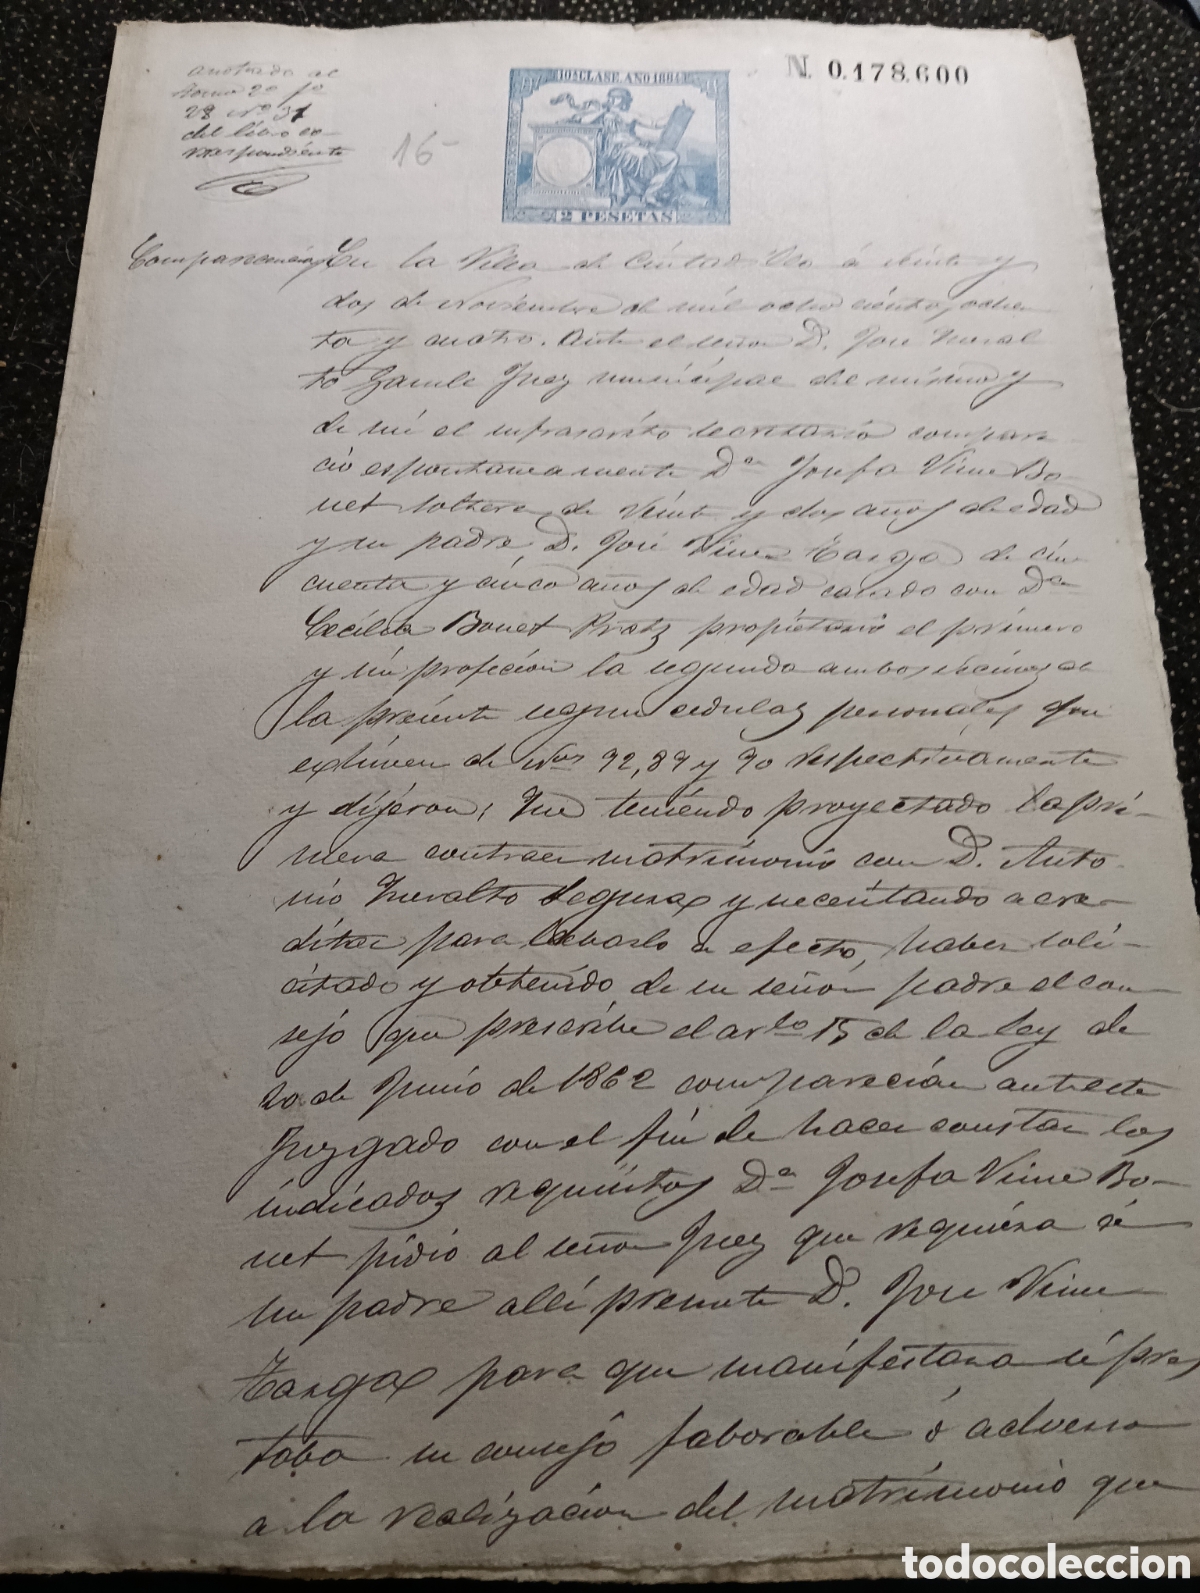 anotado al
tomo 20 fo
28 nº 31
del libro co-
rrespondiente
16-
10ª CLASE. AÑO 1884
2 PESETAS
N. 0.178.600
Comparecencia, En la Villa de á veinte y
dos de Noviembre de mil ocho cientos, ochen
ta y cuatro. Ante el señor D. José Mural
to Juez municipal del mismo y
de mi el infrascrito secretario compare
ció espontaneamente Dª Josefa Vime Bo-
net soltera, de veinte y dos años de edad
y su padre, D. José Vime de cin
cuenta y cinco años de edad casado con Dª
Cecilia Bonet Pratz propietario el primero
y sin profeción la segunda ambos vecinos de
la presente segun cedulas personales que
exhiven de Nos 92, 89 y 90 respectivamente
y dijeron; Que teniendo proyectado la pri-
mera contraer matrimonio con D. Anto-
nio Muralto Segura y necesitando acre-
ditar para llebarlo a efecto, haber soli-
citado y obtenido de su señor padre el con
sejo que prescribe el arto 15 de la Ley de
20 de Junio de 1862 comparecían ante este
Juzgado con el fin de hacer constar los
indicados requisitos Dª Josefa Vime Bo-
net pidió al señor Juez que requiera á
su padre allí presente D. José Vime
para que manifestara si pres
taba su consejo faborable ó adverso
a la realización del matrimonio que
todocoleccion